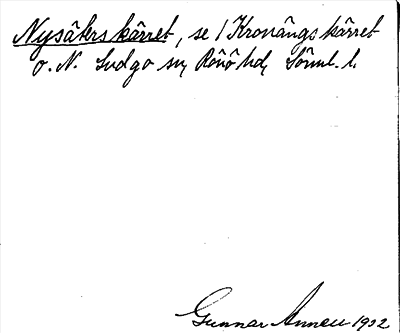 Nysåkers kärret, se / Kronängskärret
o. N. Ludgo sn, Rönö hd, Sörml. l.
Gunnar Annell 1932